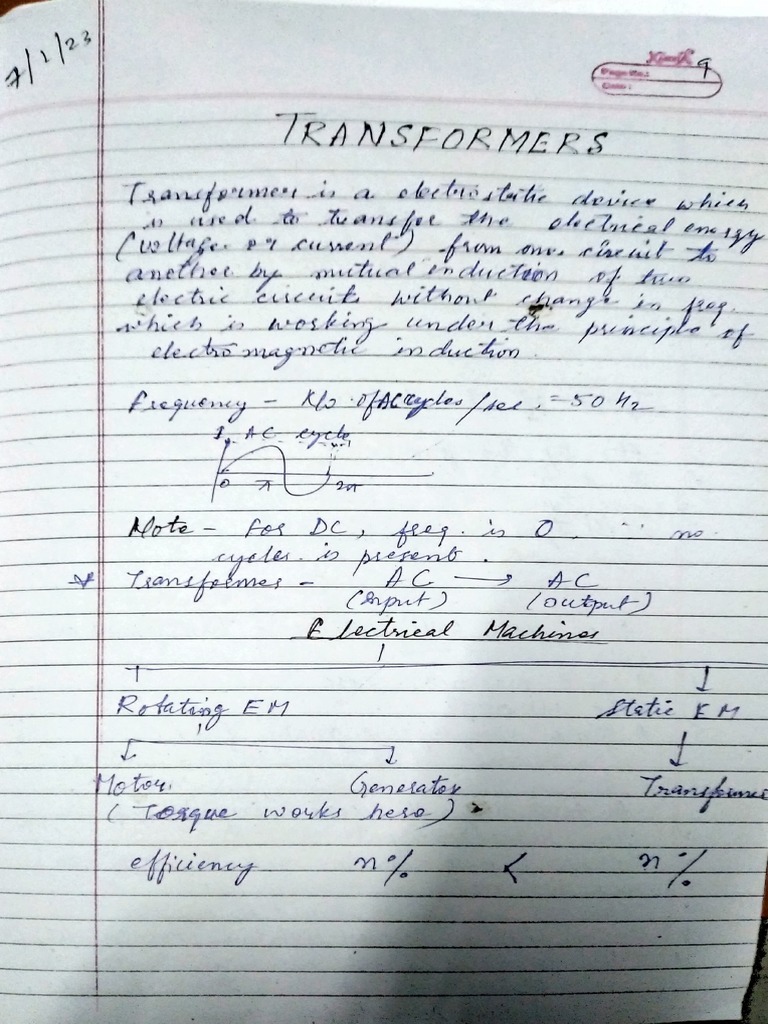 7/1/23
9
Page No.:
Date:
TRANSFORMERS
Transformer is a electrostatic device which
is used to transfer the electrical energy
(voltage or current) from one circuit to
another by mutual induction of two
electric circuits without change in freq.
which is working under the principle of
electromagnetic induction.
Frequency - of AC cycles/sec. = 50 Hz
1 AC cycle
0 π 2π
Note - For DC, freq. is 0 no.
cycles is present.
* Transformer - AC → AC
(Input) (output)
Electrical Machines
Rotating EM Static EM
Motor Generator Transformer
(Torque works here)
efficiency n% < n%